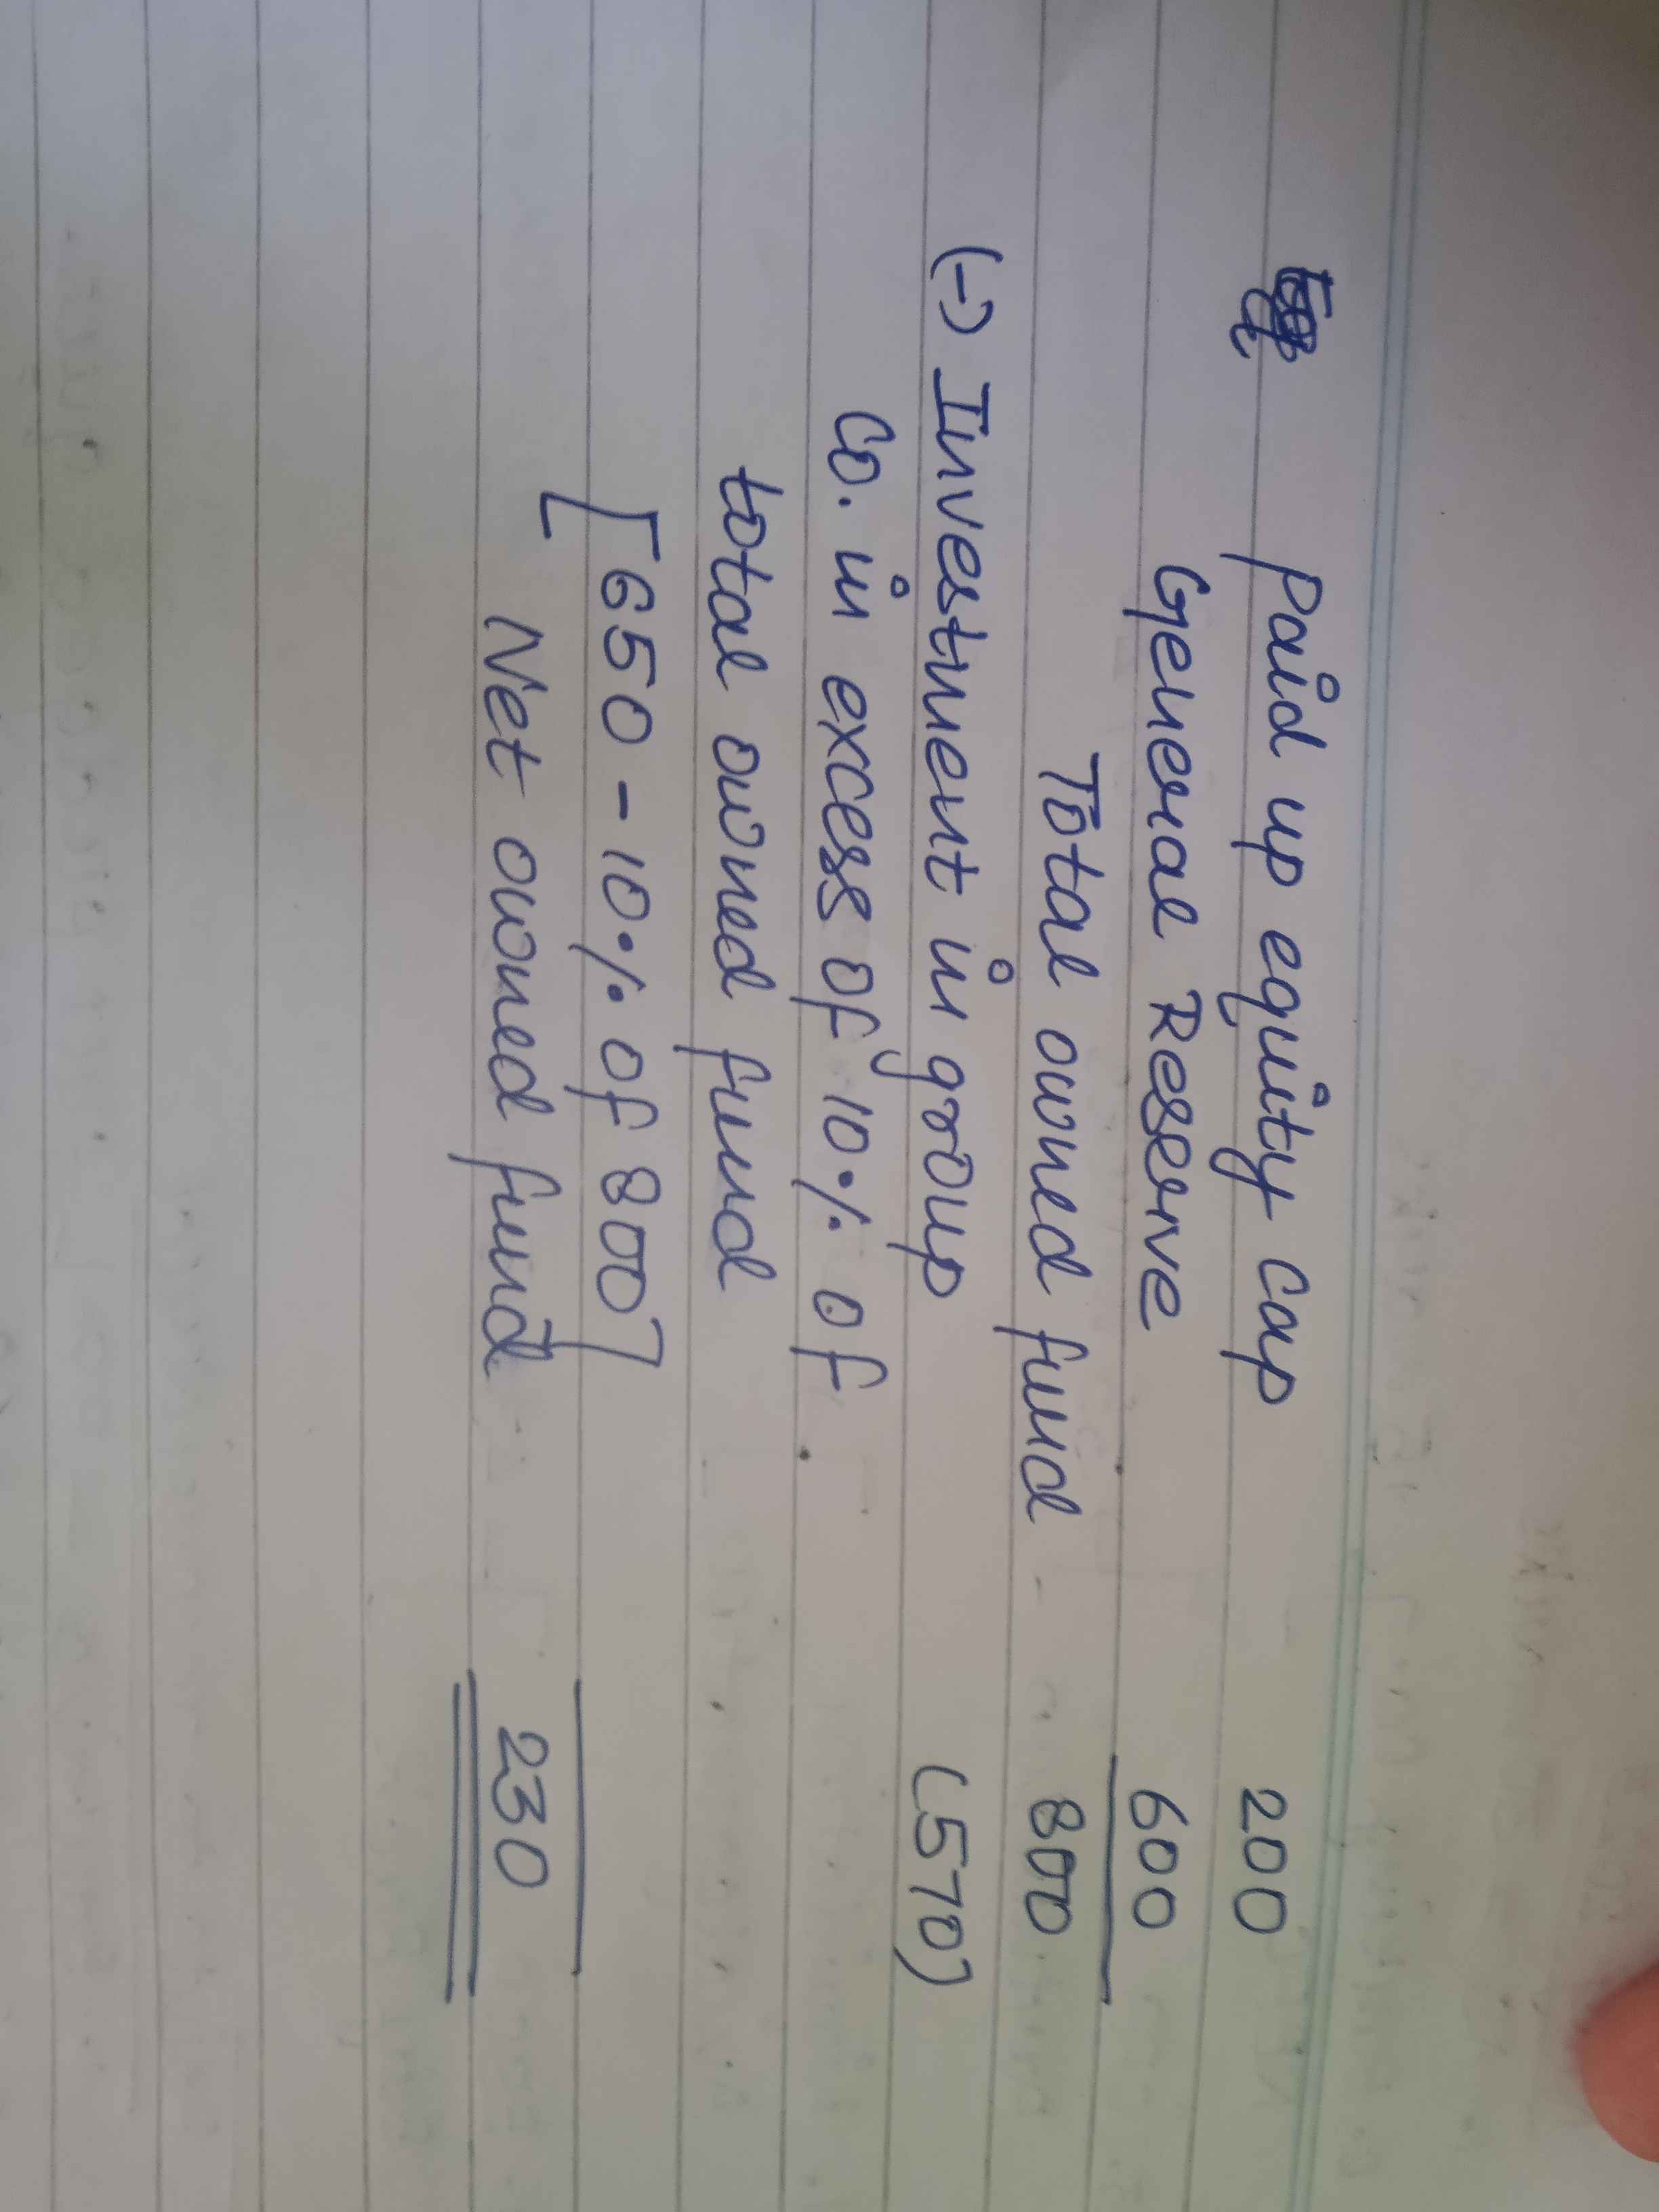 Paid up equity Cap 200
General Reserve 600
Total owned fund 800
(-) Investment in group (570)
Co. in excess of 10% of
total owned fund
[650 - 10% of 800]
Net owned fund 230